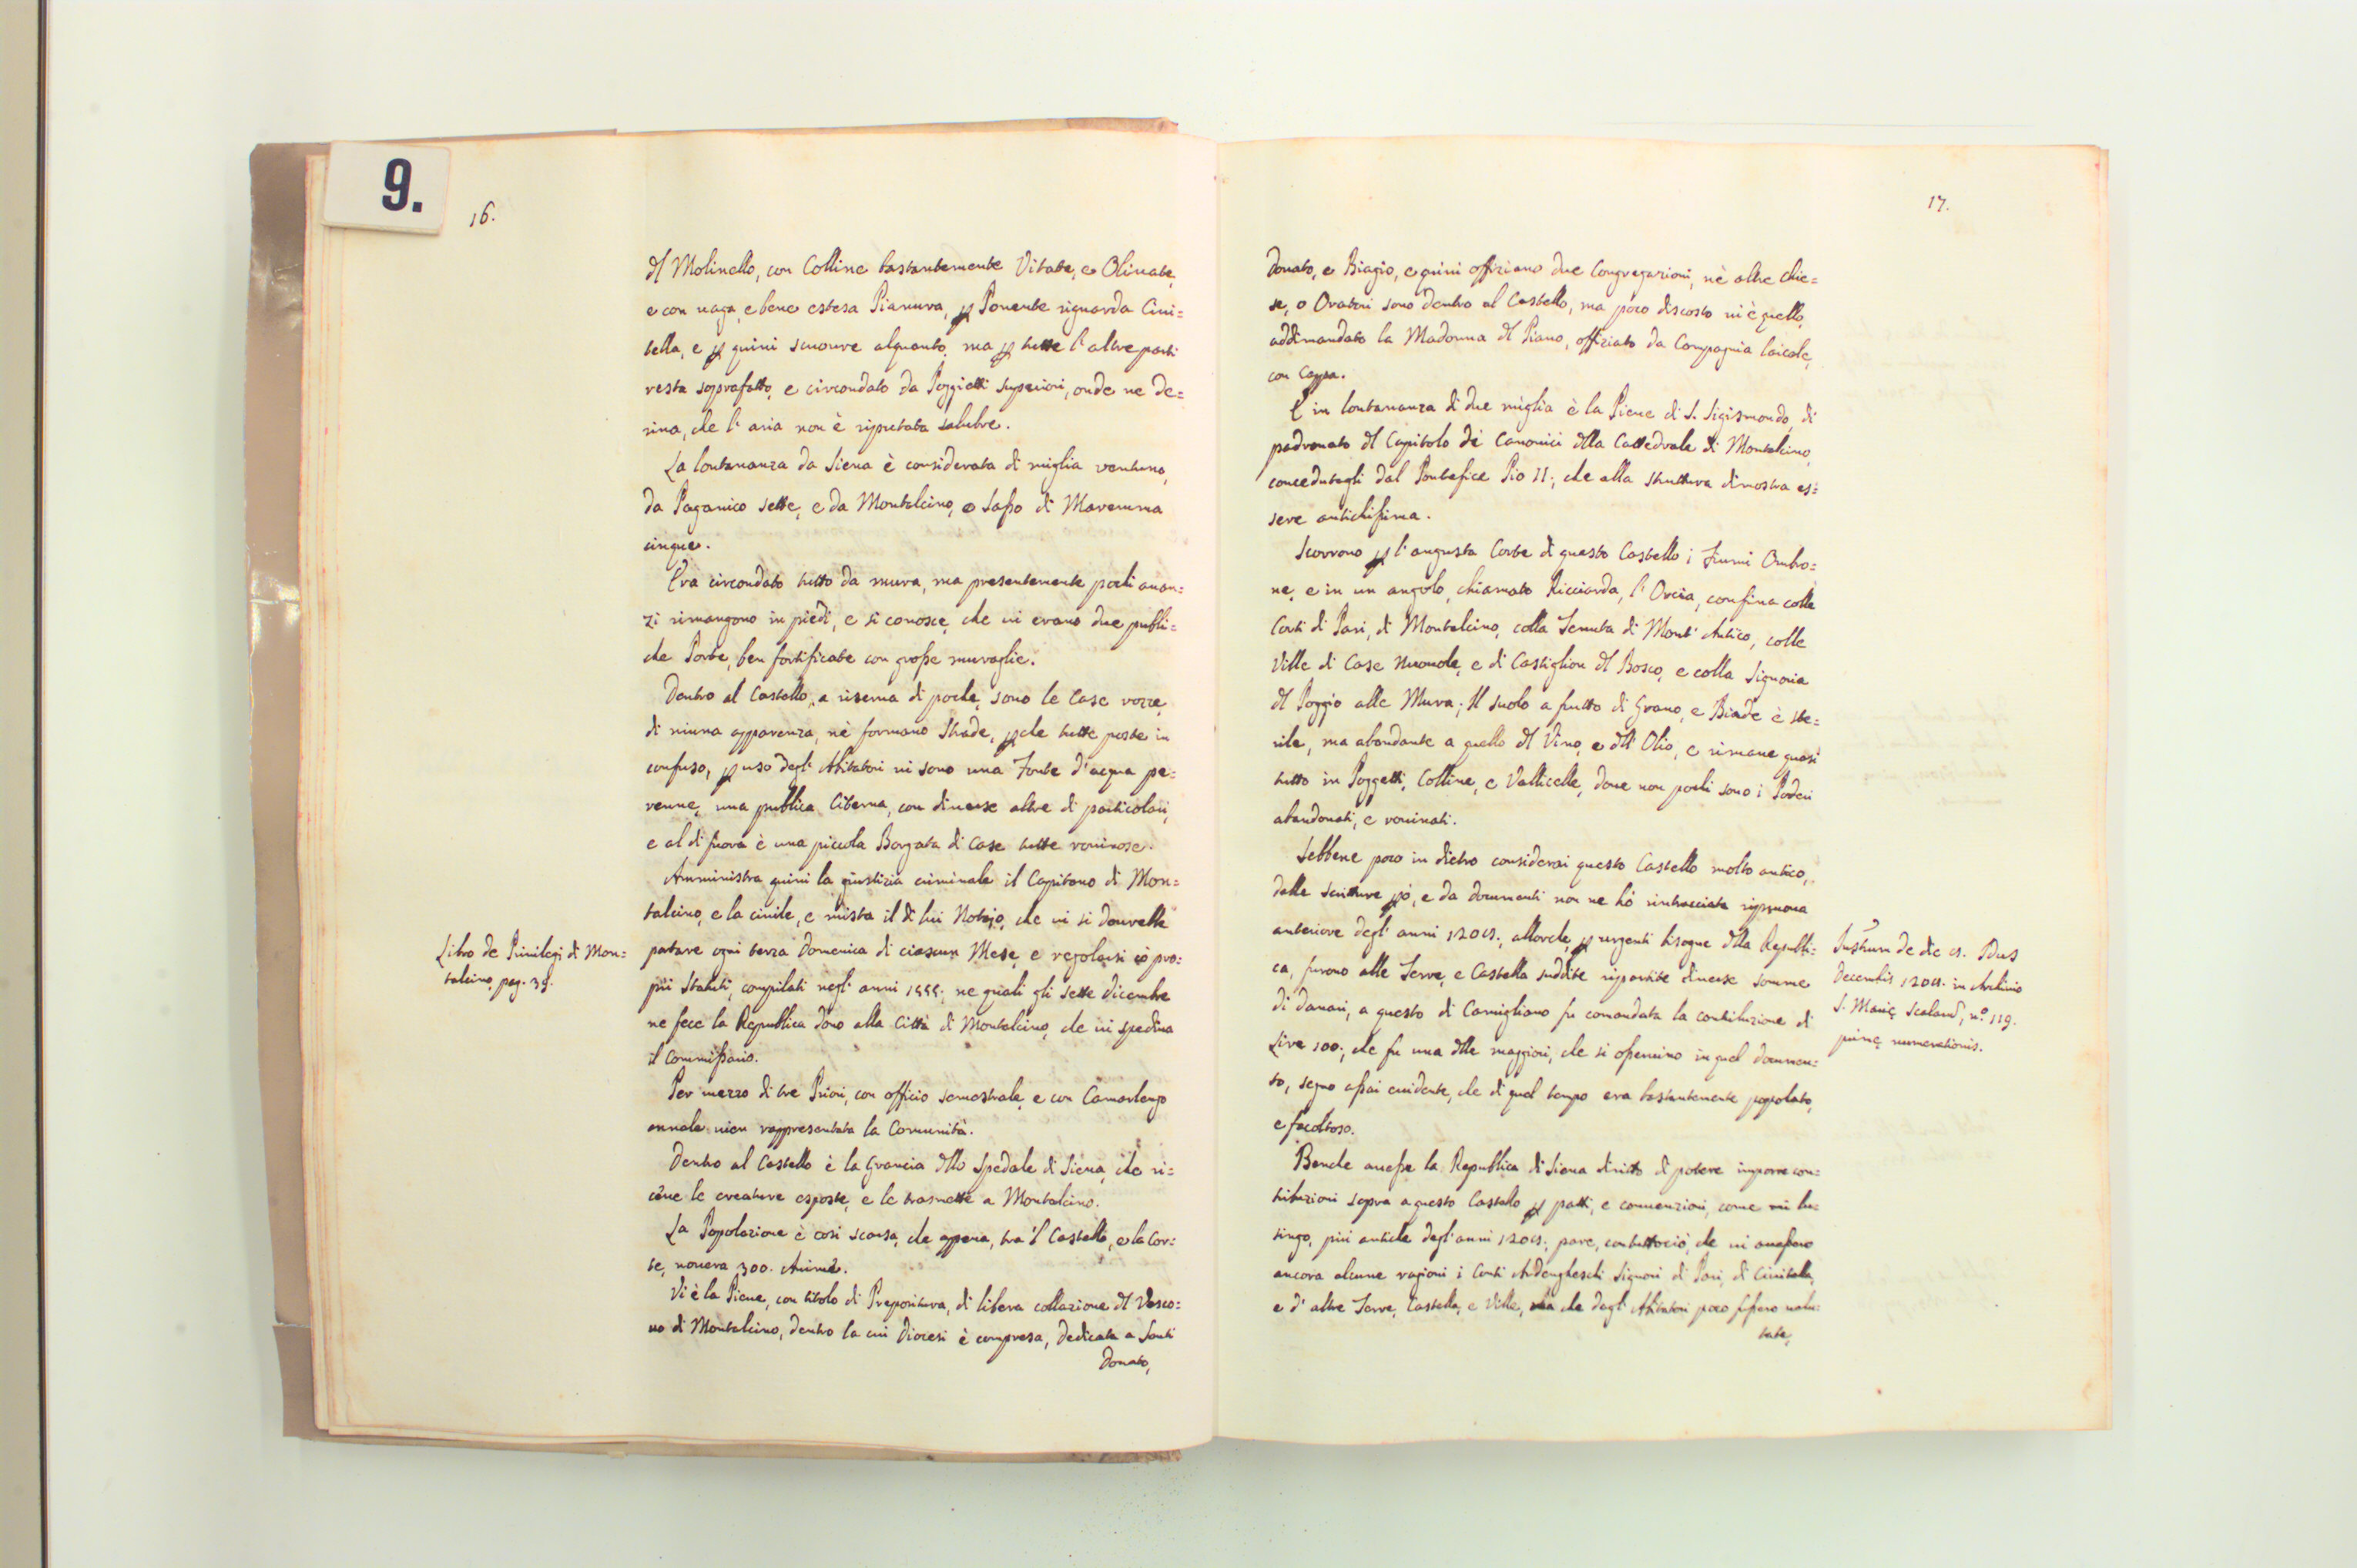 9.
16.
dl Molinello, con Colline bastantemente Vitate, e Olivate,
e con vaga, e bene estesa Pianura, p Ponente riguarda Civi=
tella, e p quivi scuopre alquanto, ma p tutte l'altre parti
resta sopraffatto, e circondato da Poggietti superiori, onde ne de=
riva, che l'aria non è riputata salubre.
La lontananza da Siena è considerata di miglia ventuno,
da Paganico sette, e da Montalcino, e Sasso di Maremma
cinque.
Era circondato tutto da mura, ma presentemente pochi avan=
zi rimangono in piedi, e si conosce, che vi erano due publi=
che Porte, ben fortificate con grosse muraglie.
Dentro al Castello, a riserva di poche, sono le Case rozze,
di niuna apparenza, nè formano Strade, pche tutte poste in
confuso, p uso degl'Abitatori vi sono una Fonte d'acqua pe=
renne, una publica Citerna, con diverse altre di particolari,
e al di fuora è una piccola Borgata di Case tutte rovinose.
Amministra quivi la giustizia criminale il Capitano di Mon=
talcino, e la civile, e mista il di lui Notajo, che vi si dovrebbe
portare ogni terza Domenica di ciascun Mese, e regolarsi co' pro=
prii Statuti, compilati negl'anni 1555; ne quali gli sette Dicembre
ne fece la Republica dono alla Città di Montalcino, che vi spediva
il Commissario.
Libro de Privilegi di Mon=
talcino, pag. 39.
Per mezzo di tre Priori, con officio semestrale, e con Camarlengo
annale vien rappresentata la Comunità.
Dentro al Castello è la Grancia dllo Spedale di Siena, che ri=
ceve le creature esposte, e le trasmette a Montalcino.
La Popolazione è così scarsa, che appena, tra 'l Castello, e la Cor=
te, novera 300. Anime.
Vi è la Pieve, con titolo di Prepositura, di libera collazione dl Vesco=
vo di Montalcino, dentro la cui Diocesi è compresa, dedicata a Santi
Donato,
17.
Donato, e Biagio, e quivi offiziano due Congregazioni, nè altre chie=
se, o Oratori sono dentro al Castello, ma poco discosto vi è quello,
addimandato la Madonna dl Piano, offiziato da Compagnia laicale,
con Cappa.
E in lontananza di due miglia è la Pieve di S. Sigismondo, di
padronato dl Capitolo de' Canonici dlla Cattedrale di Montalcino,
concedutagli dal Pontefice Pio II; che alla struttura dimostra es=
sere antichissima.
Scorrono p l'angusta Corte di questo Castello i Fiumi Ombro=
ne, e in un angolo, chiamato Ricciarda, l'Orcia, confina colle
Corti di Pari, di Montalcino, colla Tenuta di Mont'Antico, colle
Ville di Case Nuovole, e di Castiglion dl Bosco, e colla Signoria
dl Poggio alle Mura; Il suolo a frutto di Grano, e Biade è ste=
rile, ma abondante a quello dl Vino, e dll'Olio, e rimane quasi
tutto in Poggetti, Colline, e Vallicelle, dove non pochi sono i Poderi
abandonati, e rovinati.
Sebbene poco in dietro considerai questo Castello molto antico,
dalle scritture pò, e da documenti non ne hò rintracciata riprova
anteriore degl'anni 1205., allorche, p urgenti bisogne dlla Republi=
ca, furono alle Terre, e Castella suddite ripartite diverse somme
di danari, a questo di Camigliano fu comandata la contribuzione di
Lire 100., che fu una dlle maggiori, che si osservino in quel documen=
to, segno assai evidente, che di quel tempo era bastantemente popolato,
e facoltoso.
Instrum de die 5. Idus
Decembris 1205. in Archivio
S. Marię Scalarū, n.º 119.
primę numerationis.
Benche avesse la Republica di Siena diritto di potere imporre con=
tribuzioni sopra a questo Castello p patti, e convenzioni, come mi lu=
singo, più antiche degl'anni 1205., pare, contuttociò, che vi avessero
ancora alcune ragioni i Conti Ardengheschi Signori di Pari, di Civitella,
e d'altre Terre, Castella, e Ville, che dagl'Abitatori poco fossero valu=
tate,